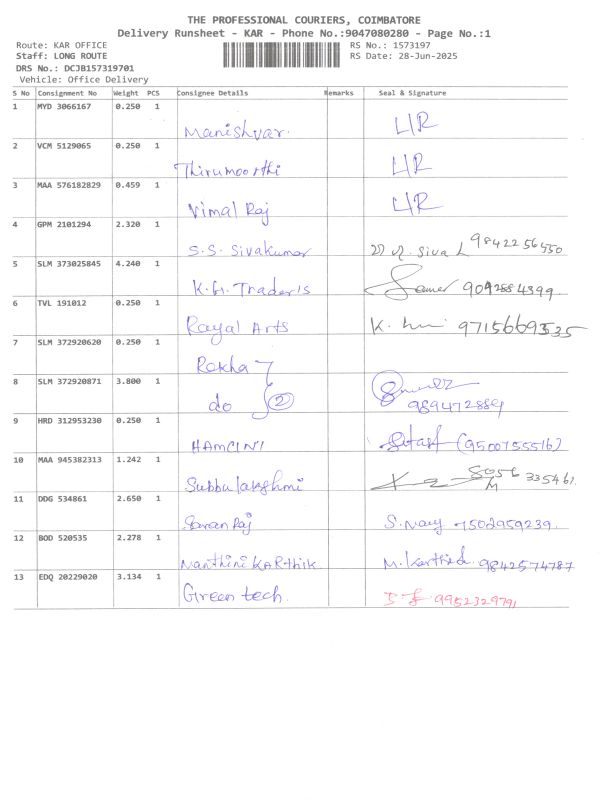 THE PROFESSIONAL COURIERS, COIMBATORE
Delivery Runsheet - KAR - Phone No.:9047080280 - Page No.:1
Route: KAR OFFICE RS No.: 1573197
Staff: LONG ROUTE RS Date: 28-Jun-2025
DRS No.: DCJB157319701
Vehicle: Office Delivery
S No Consignment No Weight PCS Consignee Details Remarks Seal & Signature
1 MYD 3066167 0.250 1
Manishvar. L/R
2 VCM 5129065 0.250 1
Thirumoorthi L/R
3 MAA 576182829 0.459 1
Vimal Raj L/R
4 GPM 2101294 2.320 1
S.S. Sivakumar Siva L 9842256550
5 SLM 373025845 4.240 1
K.G. Traders
6 TVL 191012 0.250 1
Rayal Arts K. 9715669535
7 SLM 372920620 0.250 1
Rekha
8 SLM 372920871 3.800 1
do 2 989472889
9 HRD 312953230 0.250 1
HAMCINI (9500755516)
10 MAA 945382313 1.242 1
Subbulakshmi 8056 335461
11 DDG 534861 2.650 1
Saran Raj S. 7502959239
12 BOD 520535 2.278 1
Nanthini KARthik M. Karthick 9842574787
13 EDQ 20229020 3.134 1
Green tech. 9952329791